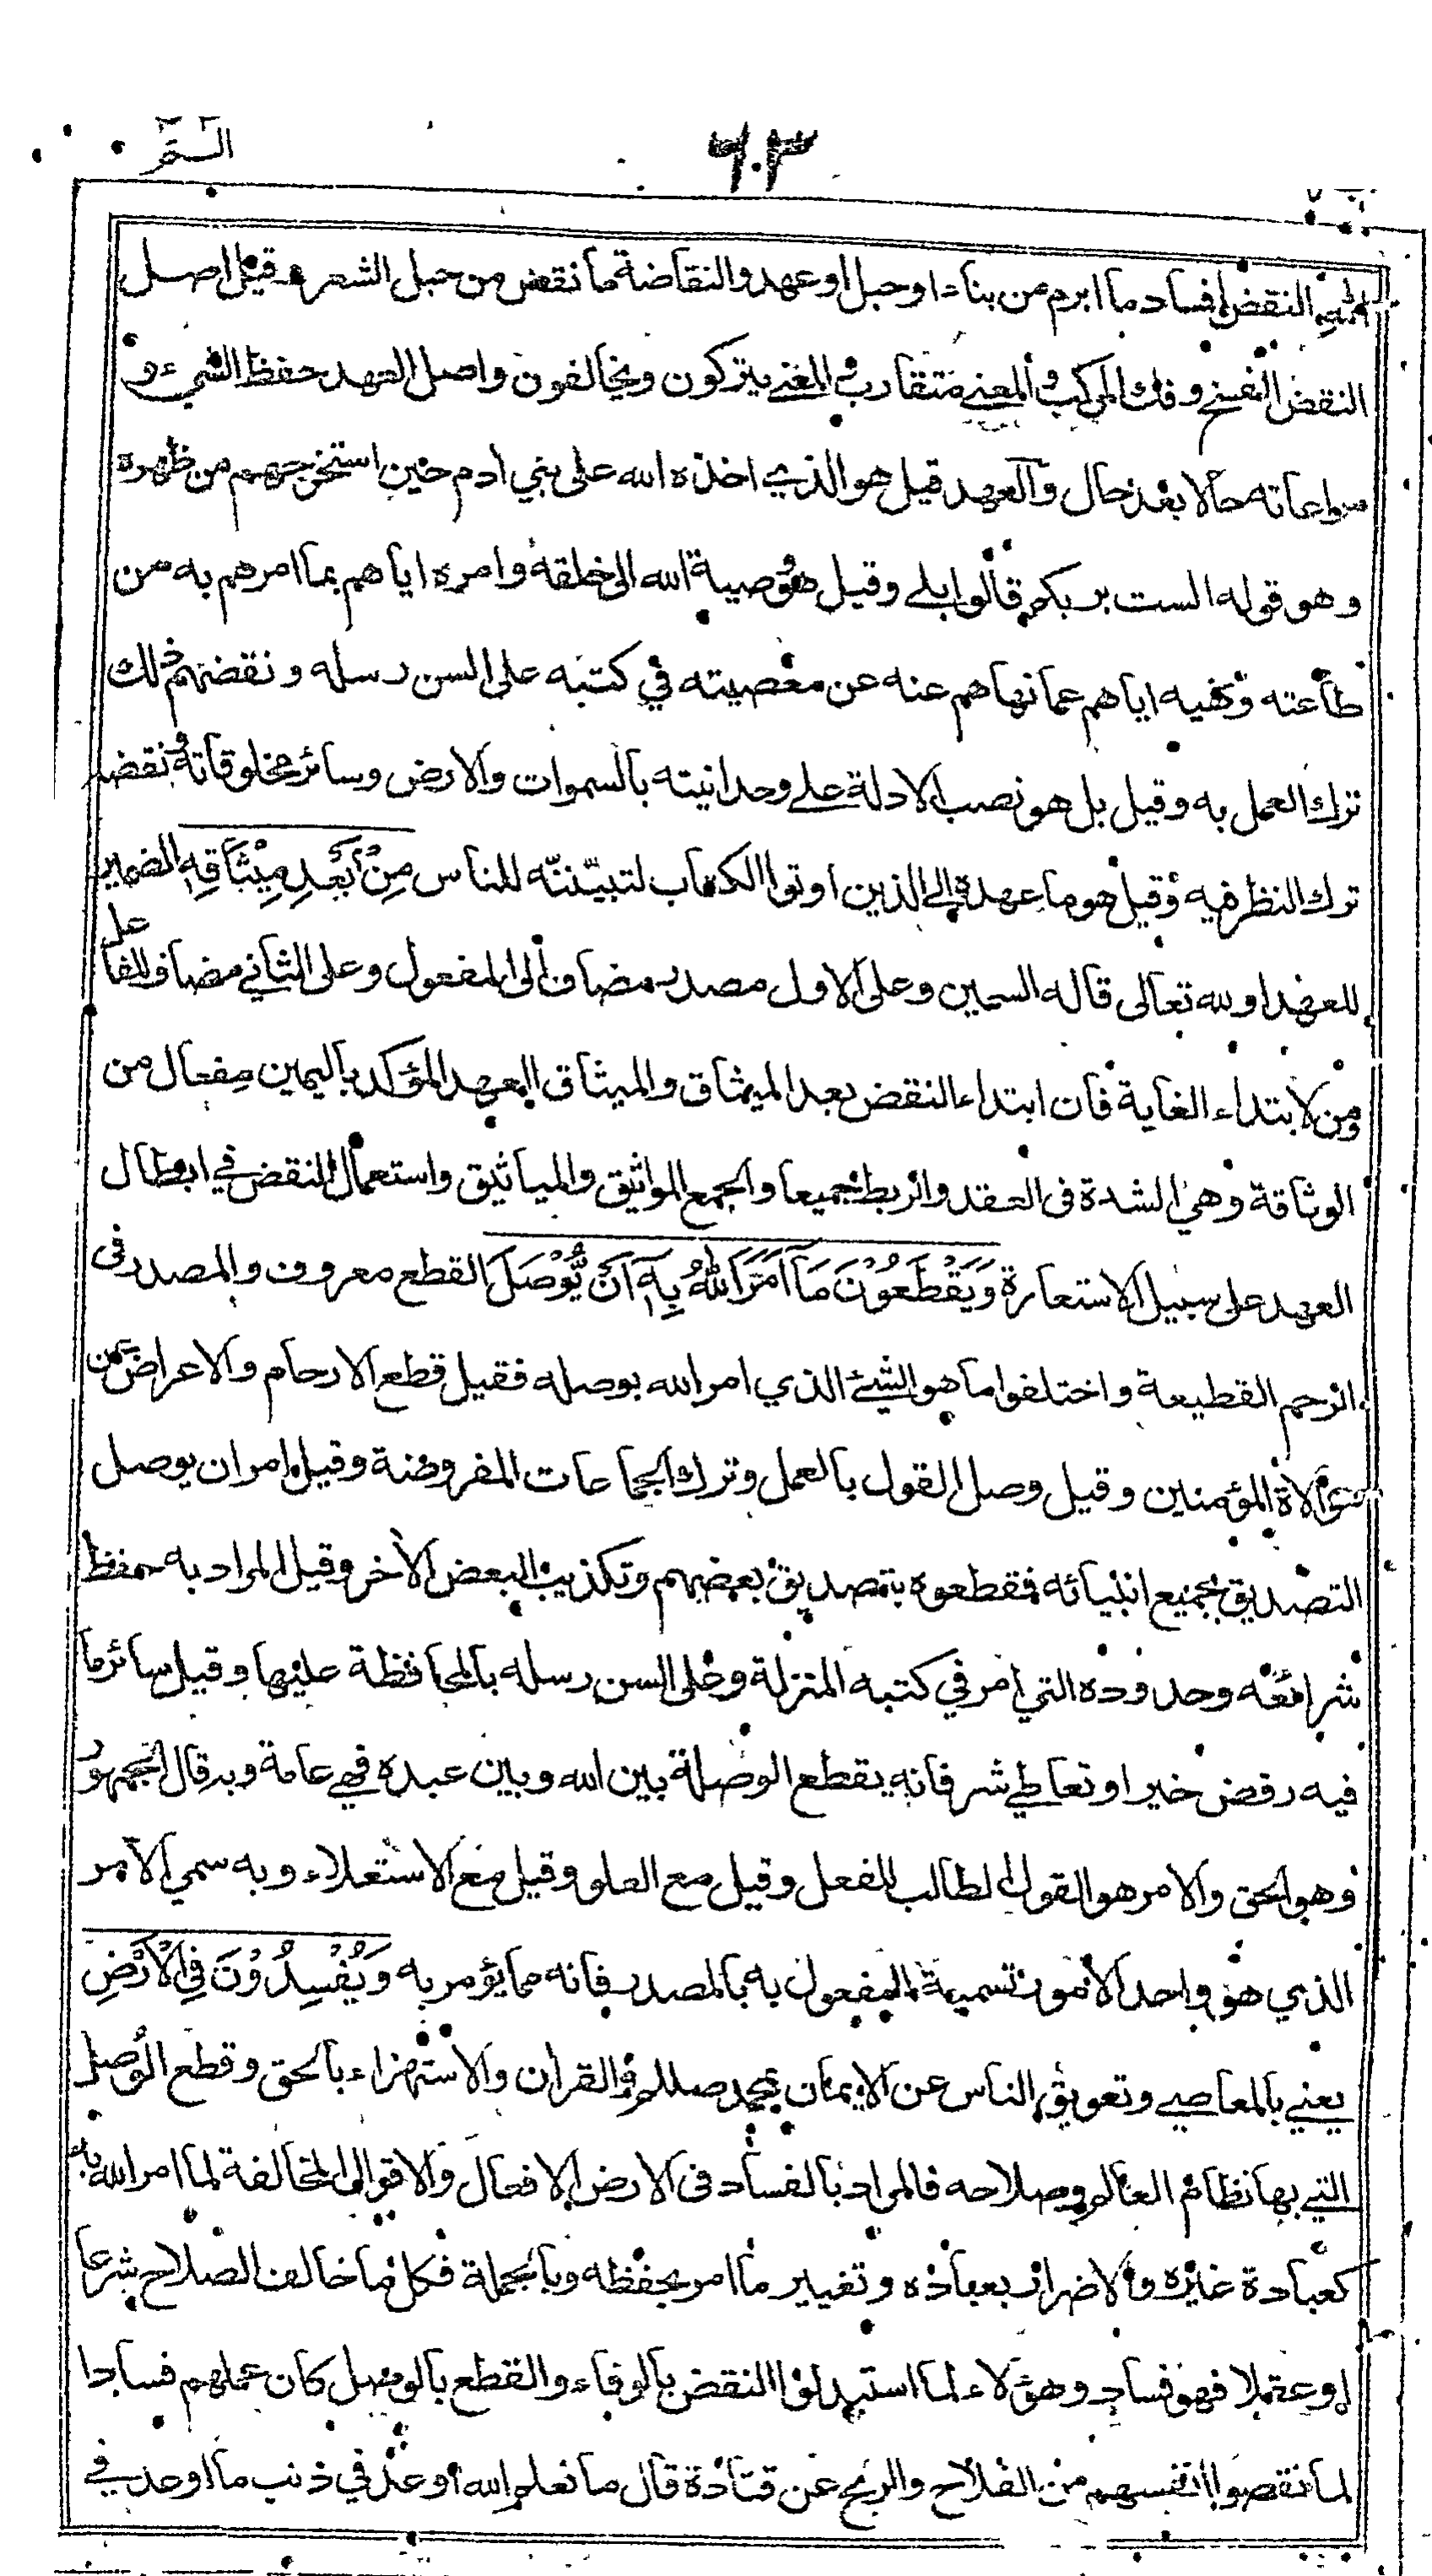 ٦٠٣
الٓمّٓ
النقض افساد ما ابرم من بناء او حبل او عهد والنقاضة ما نقض من حبل الشعر وقيل اصل
النقض الفسخ وفك المركب والمعنى متقارب والمعنى يتركون ويخالفون واصل العهد حفظ الشيء و
مراعاته حالا بعد حال والعهد قيل هو الذي اخذه الله على بني ادم حين استخرجهم من ظهره
وهو قوله الست بربكم قالوا بلى وقيل هو وصية الله الى خلقه وامره اياهم بما امرهم به من
طاعته ونهيه اياهم عما نهاهم عنه عن معصيته في كتبه على السن رسله ونقضهم ذلك
ترك العمل به وقيل بل هو نصب الادلة على وحدانيته بالسموات والارض وسائر مخلوقاته ونقضه
ترك النظر فيه وقيل هو ما عهده الى الذين اوتوا الكتاب لتبيننّه للناس مِنْ بَعْدِ مِيْثَاقِهِ الضمير
للعهد او لله تعالى قاله السمين وعلى الاول مصدر مضاف الى المفعول وعلى الثاني مضاف للفاعل
ومن لابتداء الغاية فان ابتداء النقض بعد الميثاق والميثاق العهد المؤكد باليمين مفعال من
الوثاقة وهي الشدة فى العقد والربط جميعا والجمع المواثيق والمياثيق واستعمال النقض في ابطال
العهد على سبيل الاستعارة وَيَقْطَعُوْنَ مَآ اَمَرَ اللهُ بِهٖٓ اَنْ يُّوْصَلَ القطع معروف والمصدر فى
الرحم القطيعة واختلفوا ما هو الشئ الذي امر الله بوصله فقيل قطع الارحام والاعراض عن
موالاة المؤمنين وقيل وصل القول بالعمل وترك الجماعات المفروضة وقيل امر ان يوصل
التصديق بجميع انبيائه فقطعوه بتصديق بعضهم وتكذيب البعض الاخر وقيل المراد به حفظ
شرائعه وحدوده التي امر في كتبه المنزلة وعلى السن رسله بالمحافظة عليها وقيل سائر ما
فيه رفض خير او تعاطي شر فانه يقطع الوصلة بين الله وبين عبده فهي عامة وبه قال الجمهور
وهو الحق والامر هو القول الطالب للفعل وقيل مع العلو وقيل مع الاستعلاء وبه سمي الامر
الذي هو واحد الامور تسمية للمفعول به بالمصدر فانه مما يؤمر به وَيُفْسِدُوْنَ فِي الْاَرْضِ
يعني بالمعاصي وتعويق الناس عن الايمان بمحمد صللم والقران والاستهزاء بالحق وقطع الوصل
التي بها نظام العالم وصلاحه فالمراد بالفساد فى الارض الافعال والاقوال المخالفة لما امر الله به
كعبادة غيره والاضرار بعباده وتغيير ما امر بحفظه وبالجملة فكل ما خالف الصلاح شرعا
او عقلا فهو فساد وهؤلاء لما استبدلوا النقض بالوفاء والقطع بالوصل كان عملهم فسادا
لما نقصوا انفسهم من الفلاح والربح عن قتادة قال ما نعلم الله اوعد في ذنب ما اوعد في